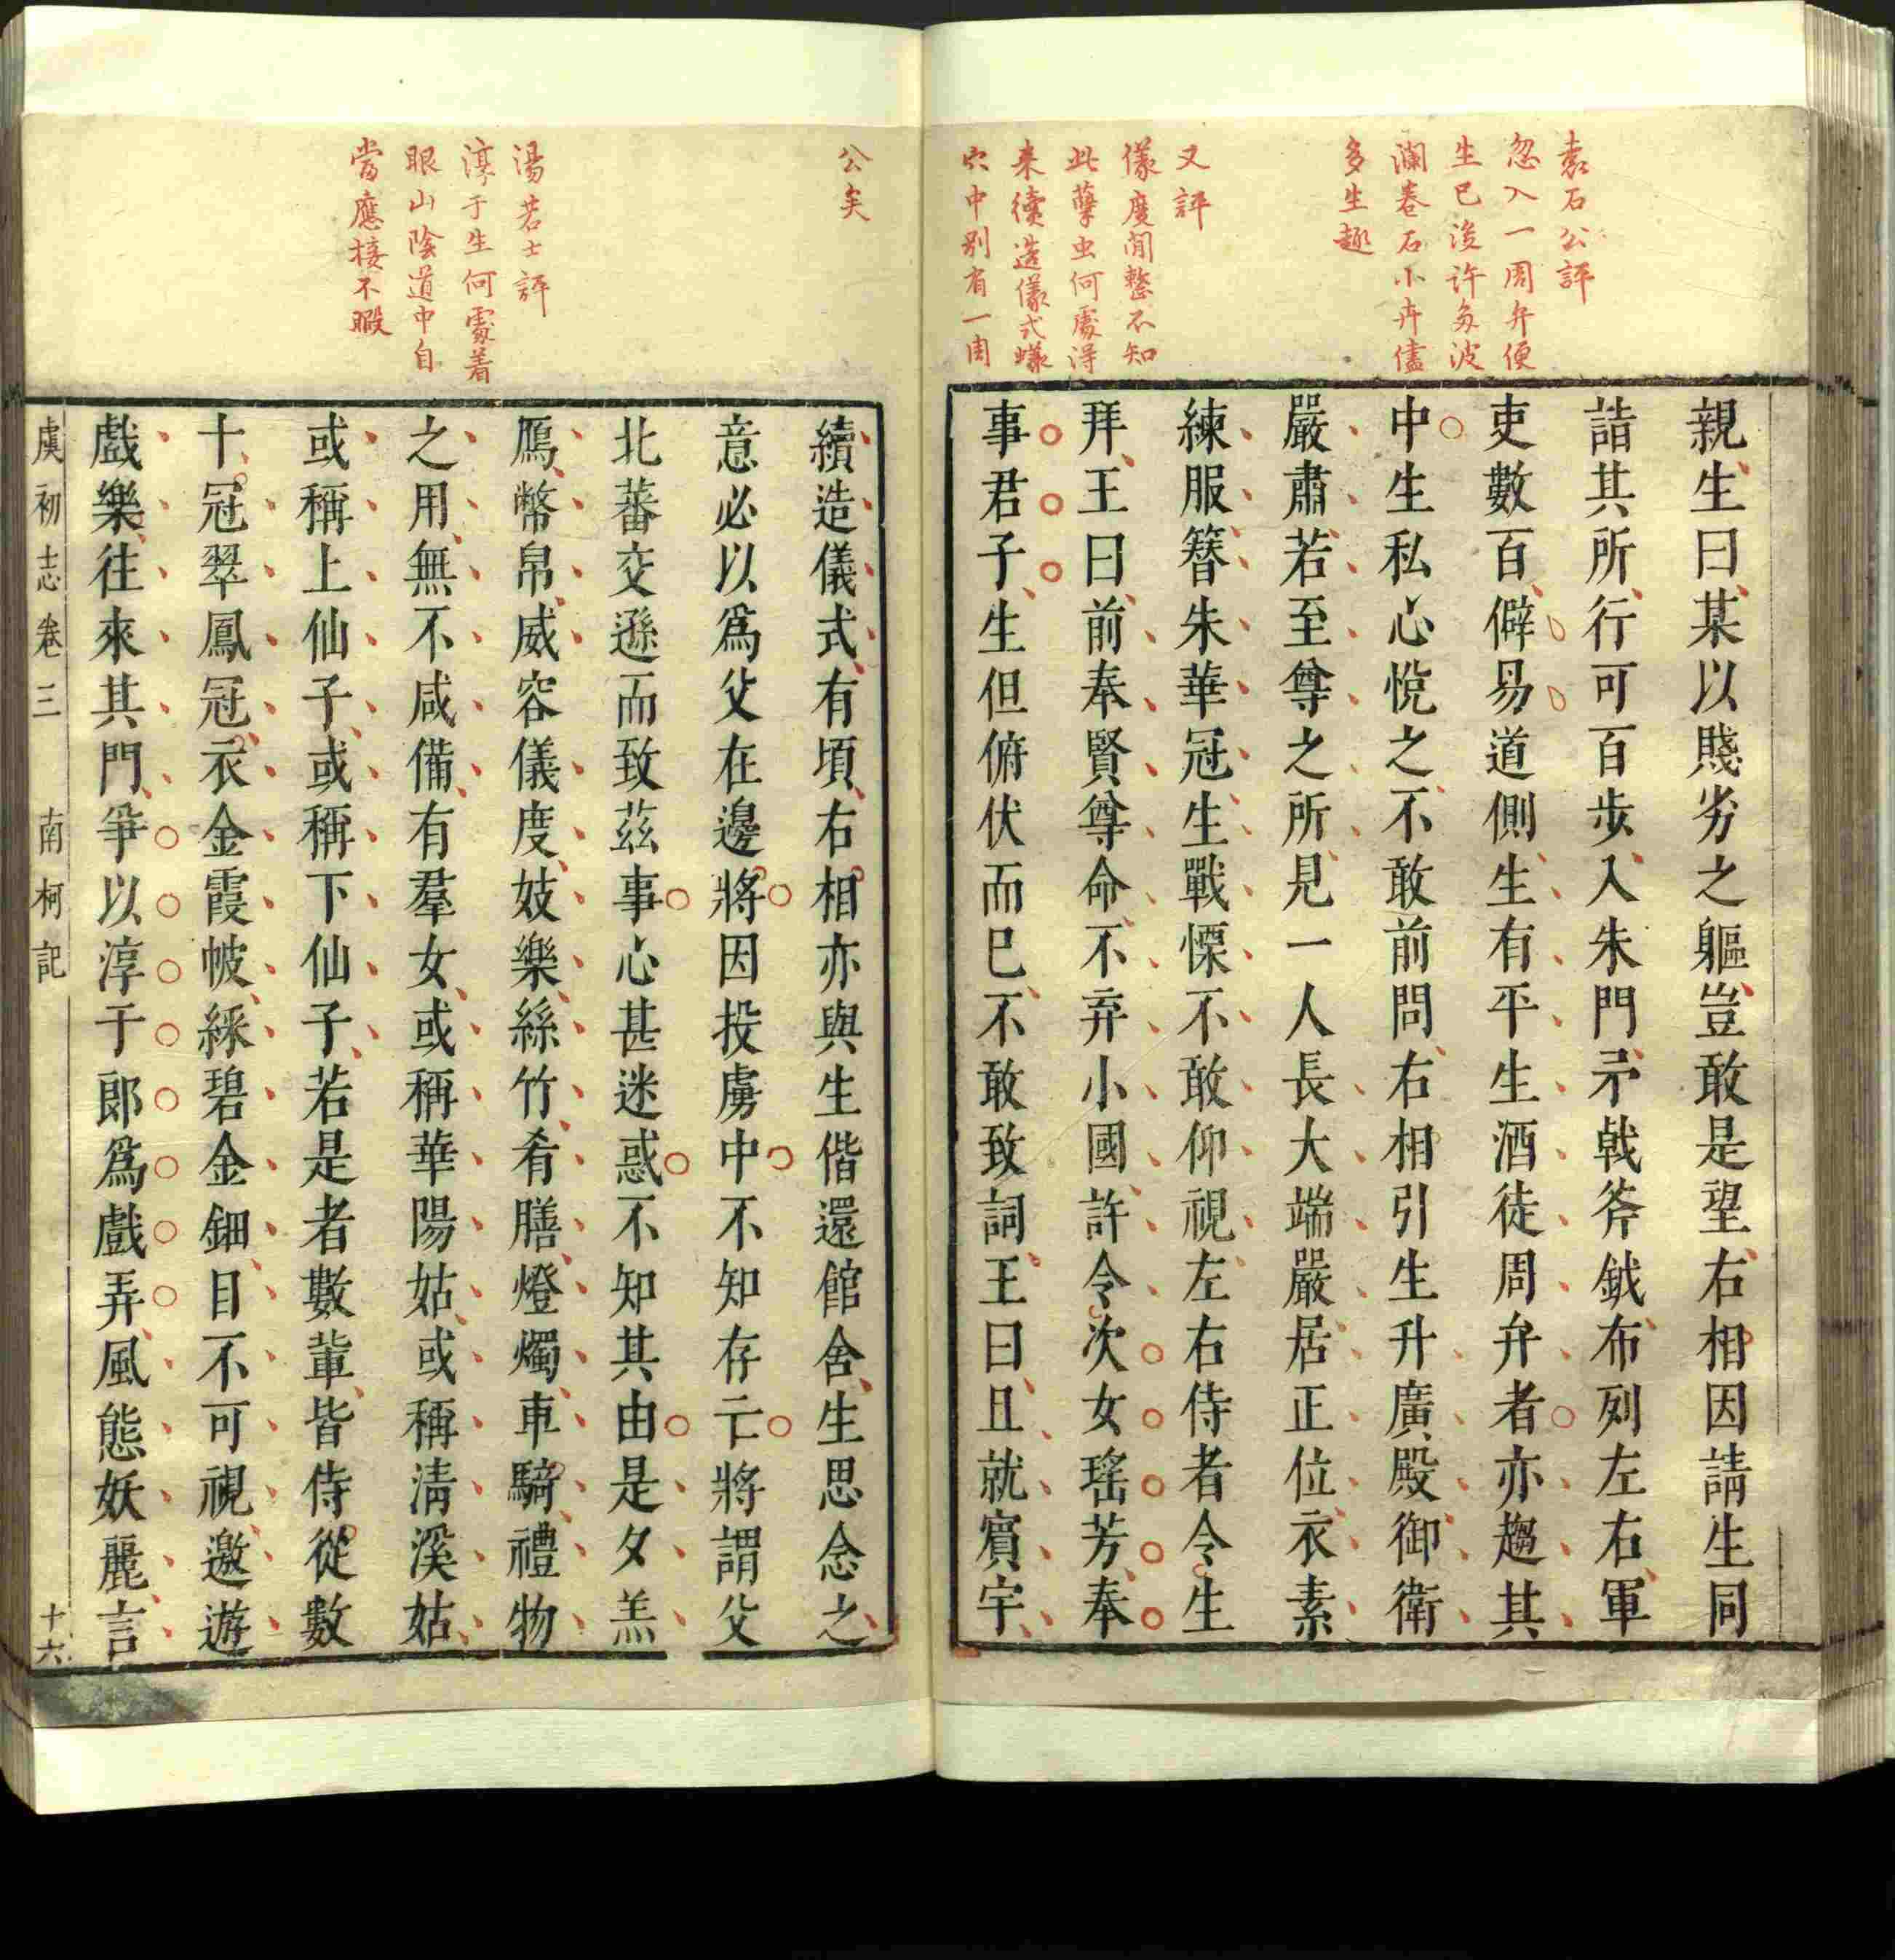 袁石公評
忽入一周弁便
生已後許多波
瀾卷石小卉儘
多生趣
又評
儀度閒整不知
此蘖虫何處得
来續造儀式蟻
穴中别有一周
親生曰某以賤劣之軀豈敢是望右相因請生同
詣其所行可百步入朱門矛戟斧鉞布列左右軍
吏數百僻易道側生有平生酒徒周弁者亦趨其
中生私心悅之不敢前問右相引生升廣殿御衛
嚴肅若至尊之所見一人長大端嚴居正位衣素
練服簪朱華冠生戰慄不敢仰視左右侍者令生
拜王曰前奉賢尊命不弃小國許令次女瑤芳奉
事君子生但俯伏而巳不敢致詞王曰且就賓宇
公矣
湯若士評
淳于生何處着
眼山陰道中自
當應接不暇
續造儀式有頃右相亦與生偕還館舍生思念之
意必以爲父在邊將因投虜中不知存亡將謂父
北蕃交遜而致茲事心甚迷惑不知其由是夕羔
鴈幣帛威容儀度妓樂絲竹肴膳燈燭車騎禮物
之用無不咸備有羣女或稱華陽姑或稱淸溪姑
或稱上仙子或稱下仙子若是者數輩皆侍從數
十冠翠鳳冠衣金霞帔綵碧金鈿目不可視遨遊
戲樂往來其門爭以淳于郎爲戲弄風態妖麗言
虞初志卷三 南柯記 十六